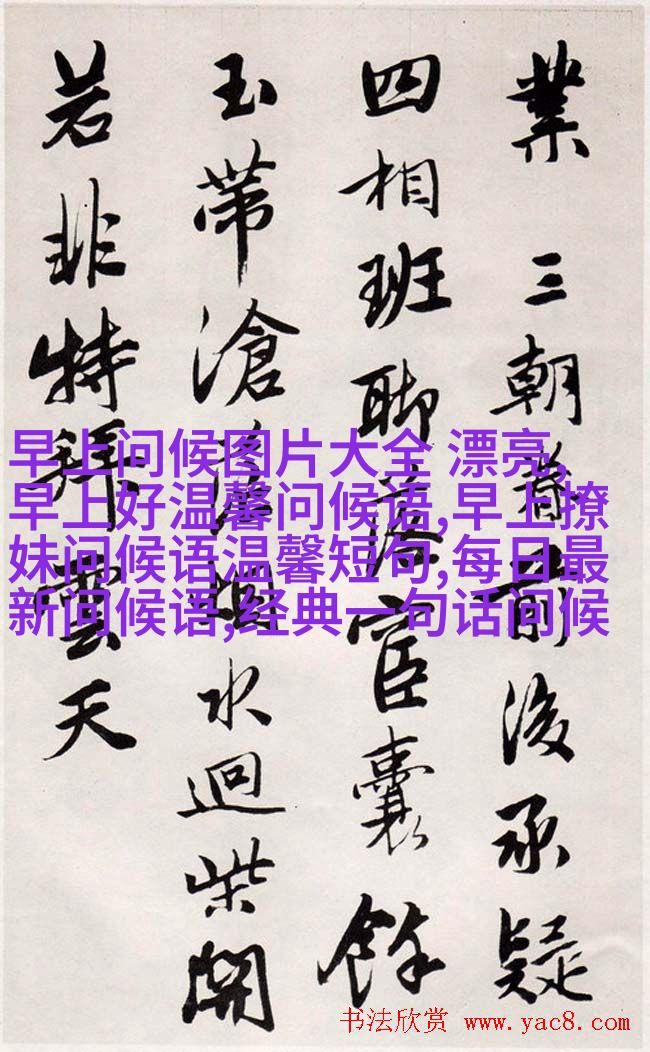 業 三朝前後承疑
四相班聊落宦囊餘
玉帶滄烟水迴柴
若非特拜雲天
早上问候图片大全 漂亮,
早上好温馨问候语,早上撩
妹问候语温馨短句,每日最
新问候语,经典一句话问候
书法欣赏 www.yac8.com